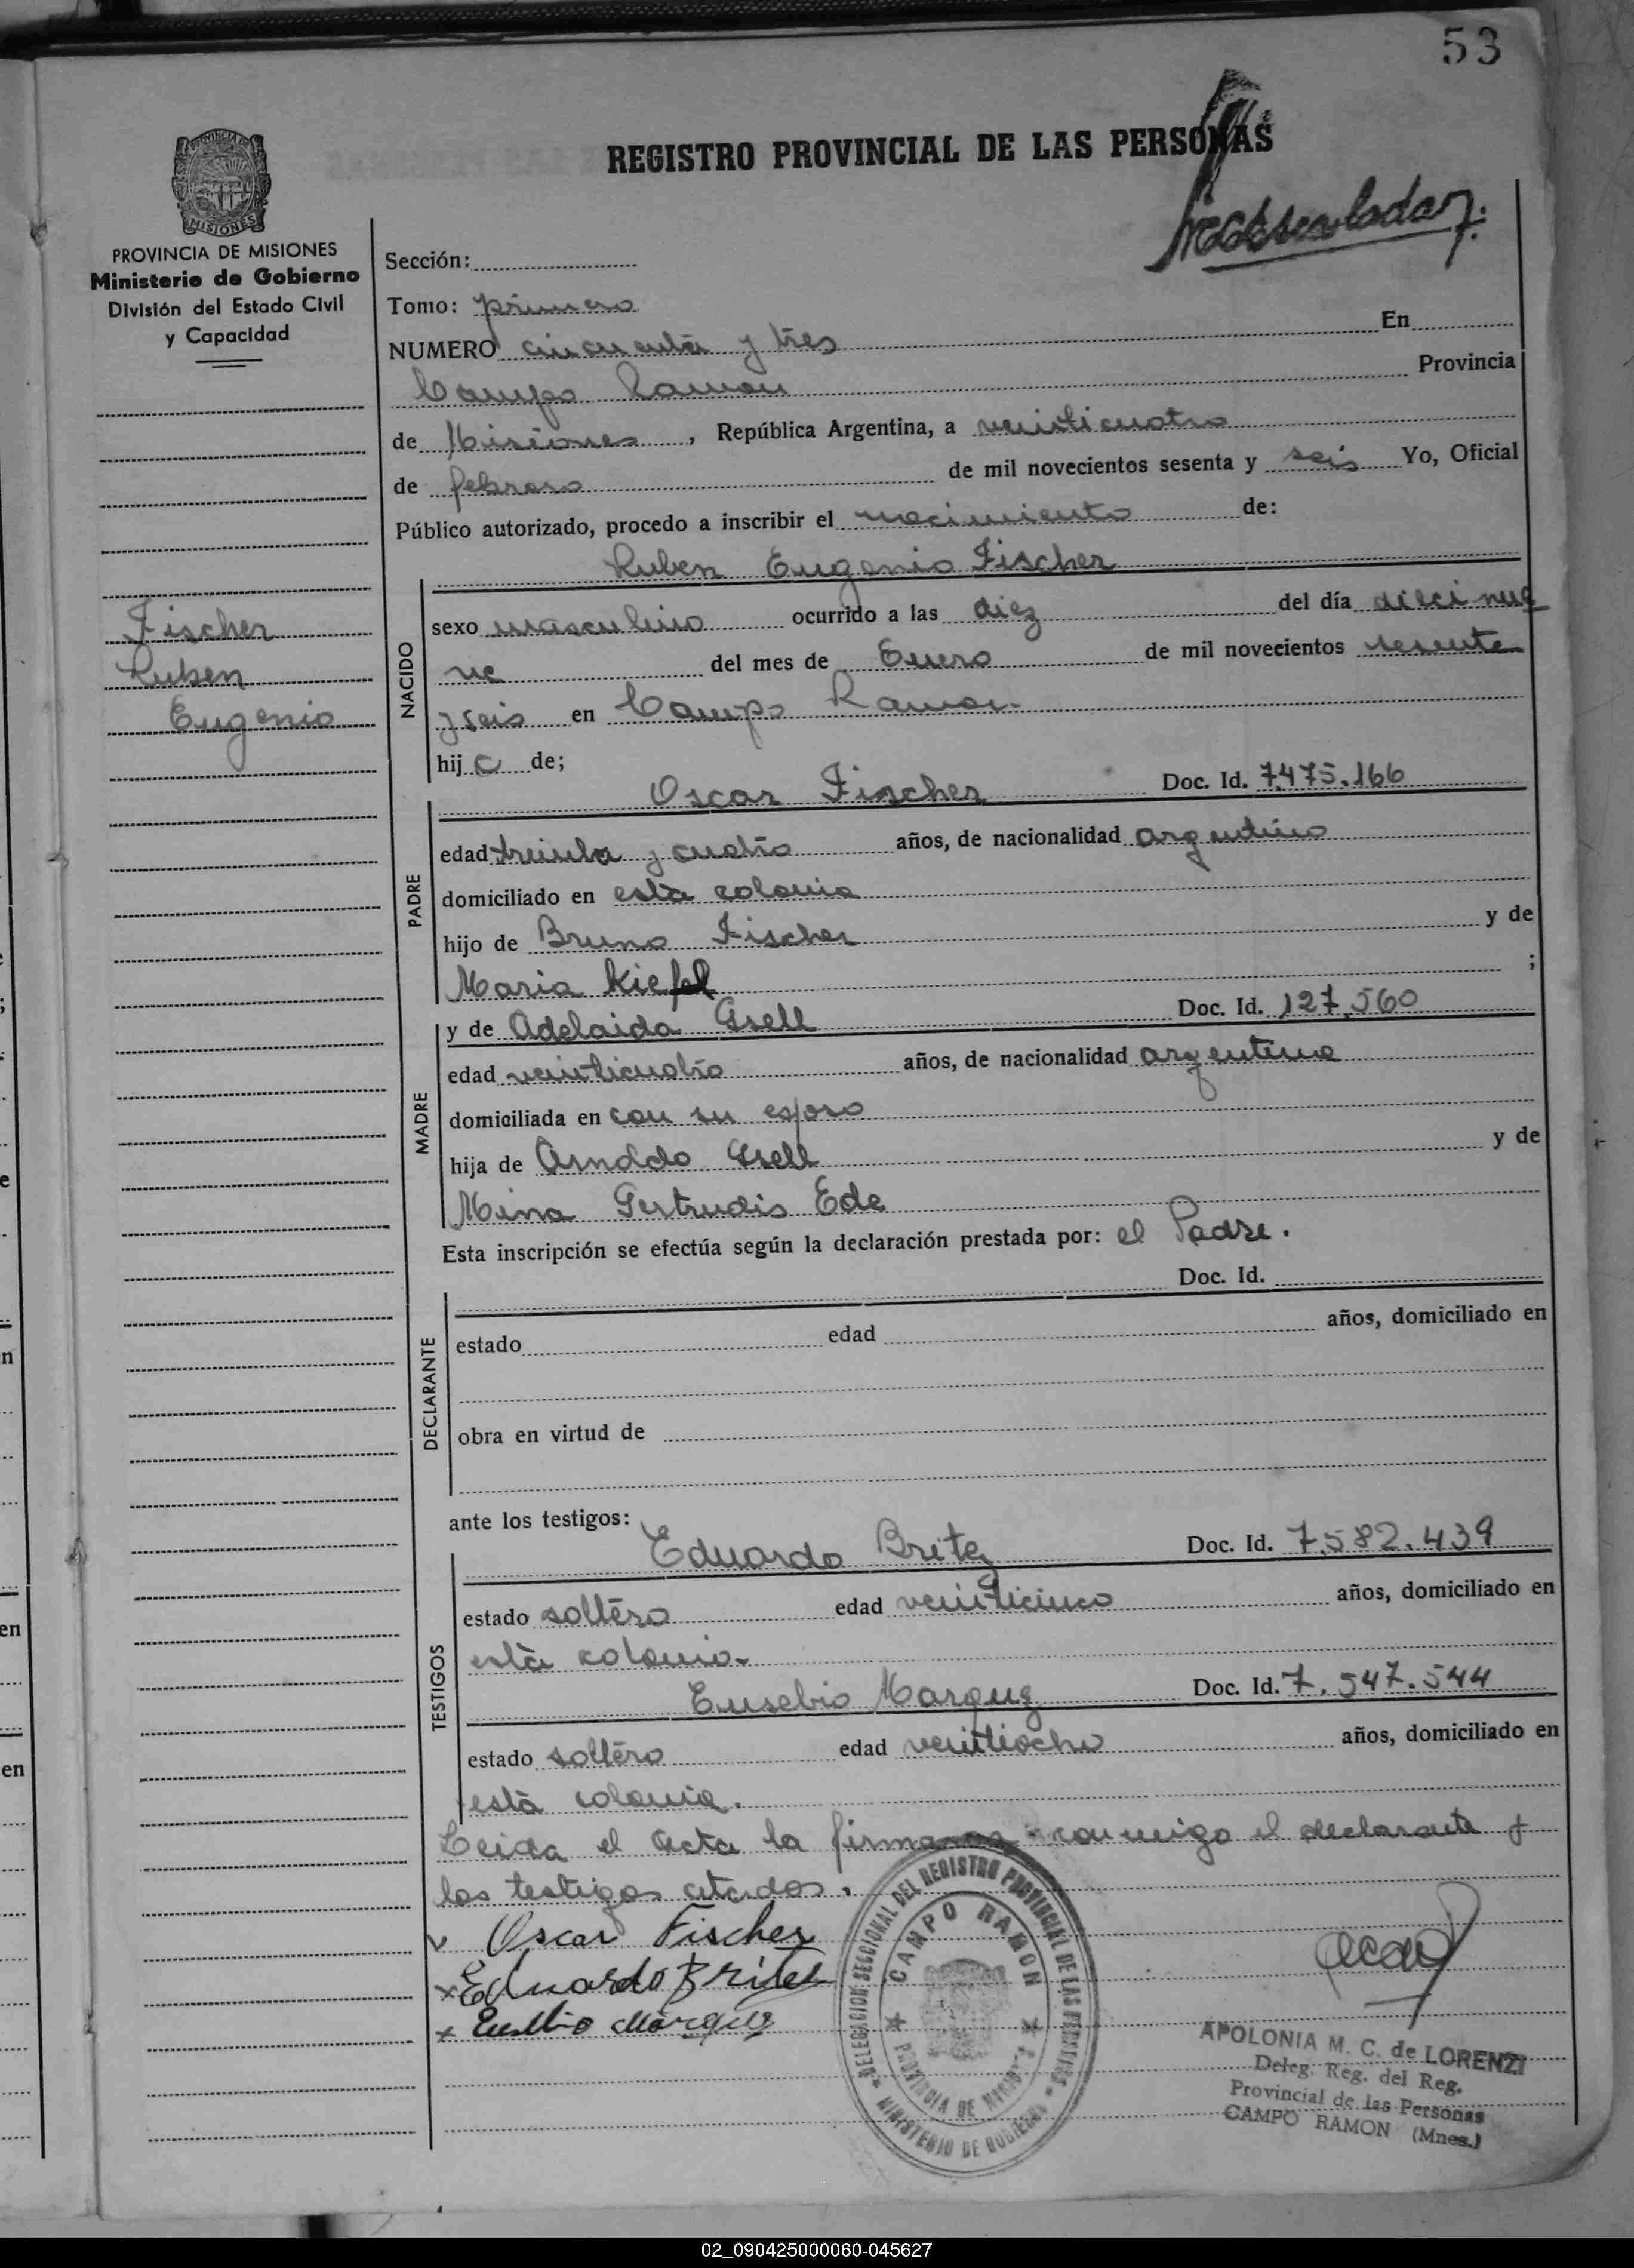 53
REGISTRO PROVINCIAL DE LAS PERSONAS
PROVINCIA DE
MISIONES
PROVINCIA DE MISIONES
Ministerio de Gobierno
División del Estado Civil
y Capacidad
Sección:
Tomo: primero
NUMERO cincuenta y tres En
Campo Ramon Provincia
de Misiones, República Argentina, a veinticuatro
de febrero de mil novecientos sesenta y seis Yo, Oficial
Público autorizado, procedo a inscribir el nacimiento de:
Ruben Eugenio Fischer
Fischer
Ruben
Eugenio
NACIDO
sexo masculino ocurrido a las diez del día dieci nue
ve del mes de Enero de mil novecientos sesenta
y seis en Campo Ramon.
hij o de;
Oscar Fischer Doc. Id. 7.475.166
PADRE
edad treinta y cuatro años, de nacionalidad argentino
domiciliado en esta colonia
hijo de Bruno Fischer y de
Maria Kiefel ;
y de Adelaida Gsell Doc. Id. 127.560
MADRE
edad veinticuatro años, de nacionalidad argentina
domiciliada en con su esposo
hija de Arnoldo Gsell y de
Mina Gertrudis Ede
Esta inscripción se efectúa según la declaración prestada por: el Padre.
Doc. Id.
DECLARANTE
estado edad años, domiciliado en
obra en virtud de
ante los testigos:
Eduardo Britez Doc. Id. 7.582.439
TESTIGOS
estado soltero edad veinticinco años, domiciliado en
esta colonia.
Eusebio Marquez Doc. Id. 7.547.544
estado soltero edad veintiocho años, domiciliado en
esta colonia.
Leida el acta la firman conmigo el declarante y
los testigos citados.
Oscar Fischer
x Eduardo Britez
x Eusebio Marquez
DELEGACION SECCIONAL DEL REGISTRO PROVINCIAL DE LAS PERSONAS
MINISTERIO DE GOBIERNO
CAMPO RAMON
PROVINCIA DE MISIONES
APOLONIA M. C. de LORENZI
Deleg. Reg. del Reg.
Provincial de las Personas
CAMPO RAMON (Mnes.)
en
en
02_090425000060-045627